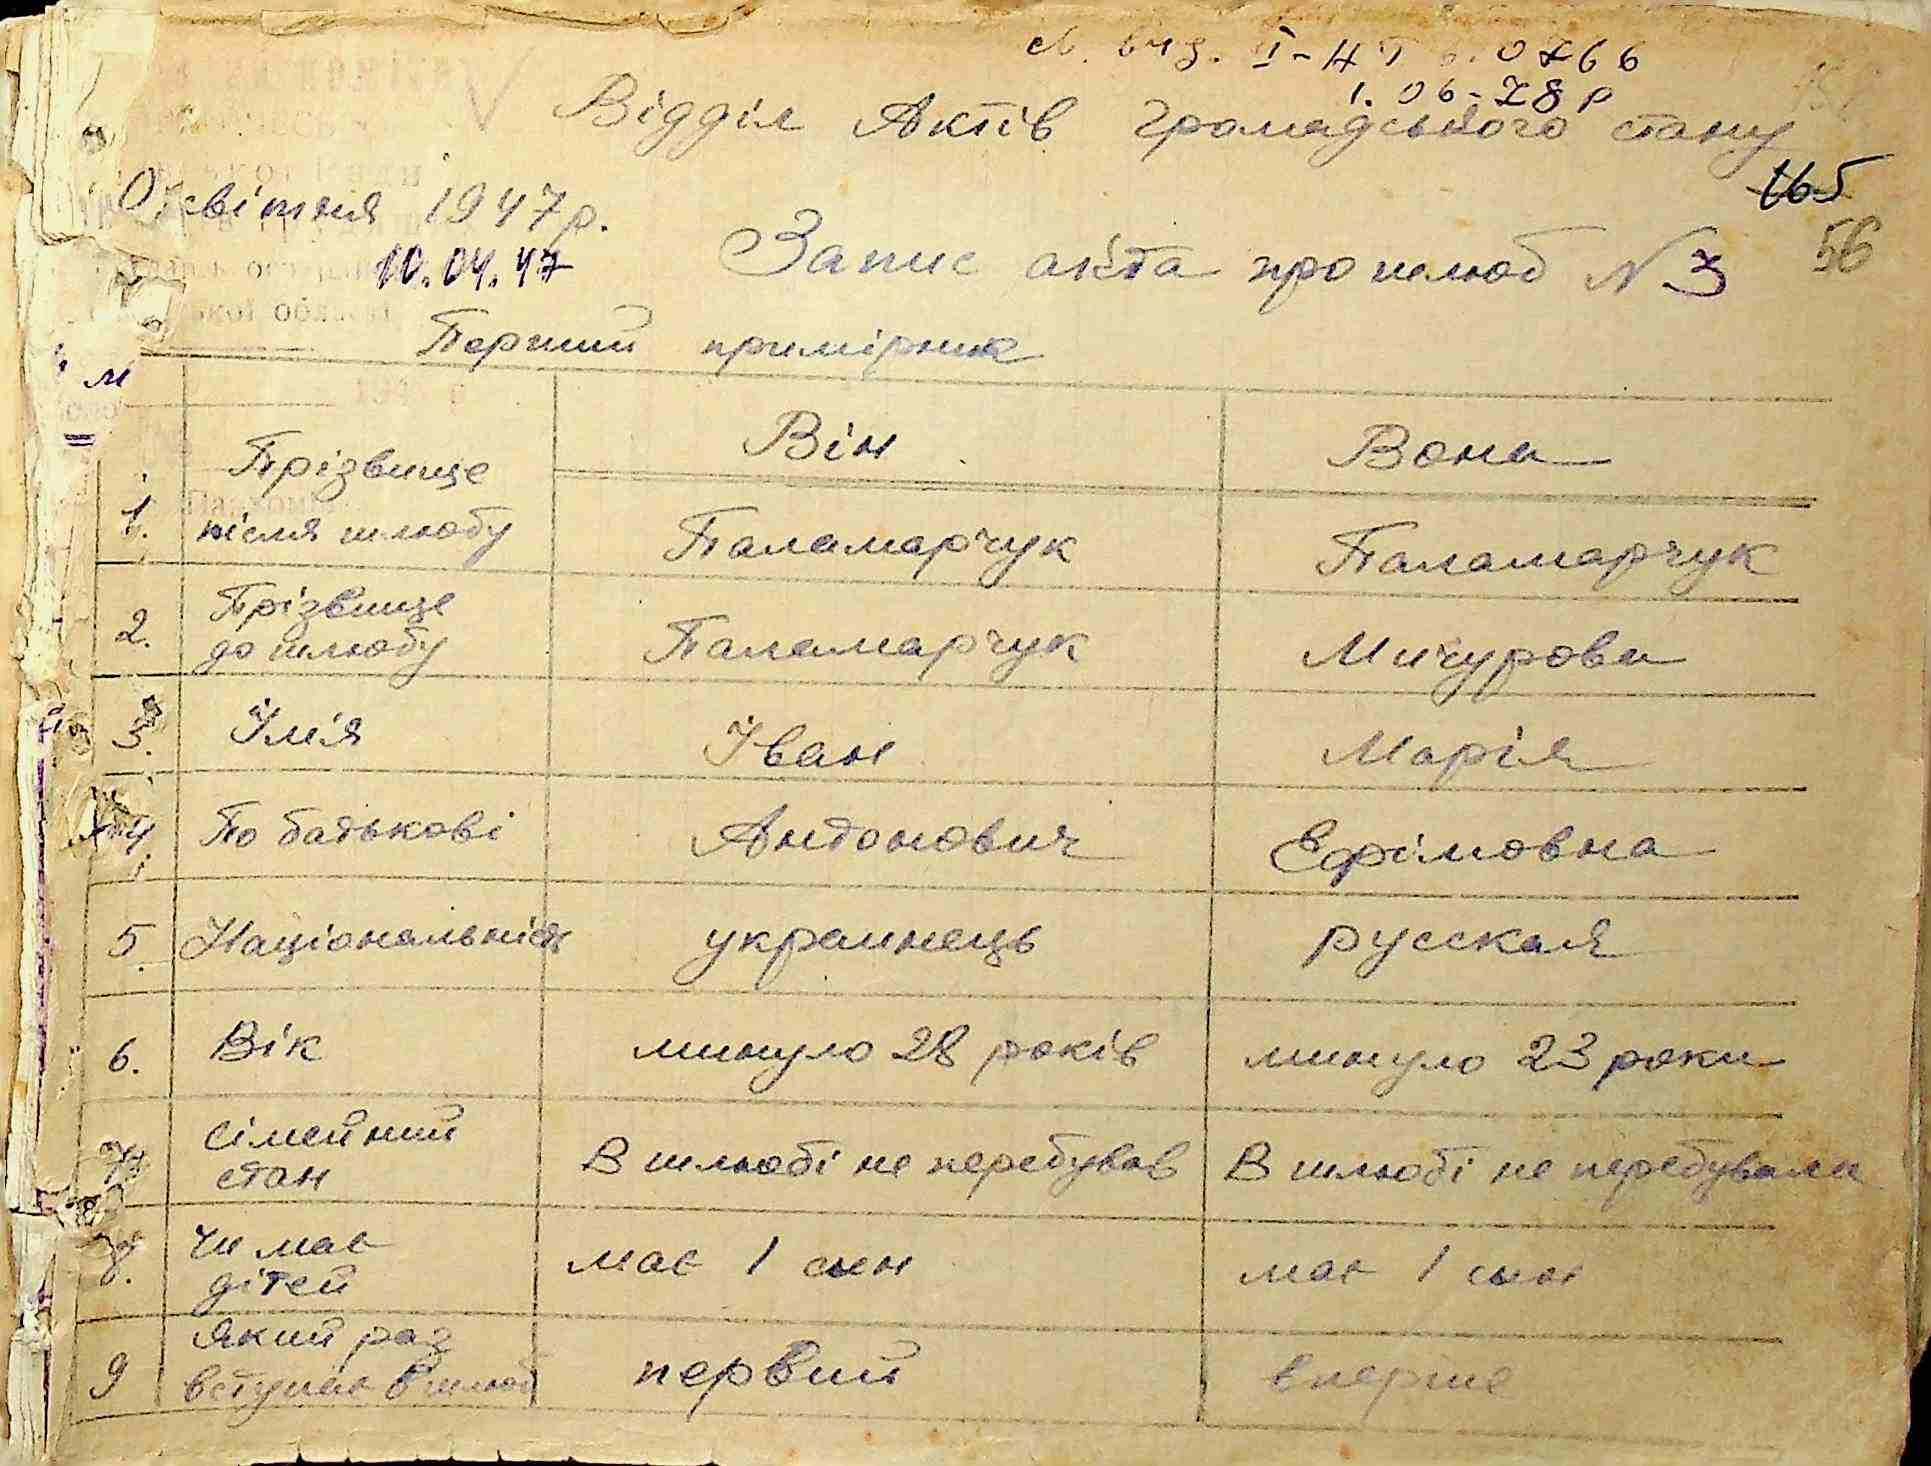 I-НТ 0766
1.06-78р
Відділ Актів Громадського стану
165
квітня 1947р.
56
10.04.47 Запис акта про шлюб N 3
Перший примірник
Він Вона
1. Прізвище після шлюбу Паламарчук Паламарчук
2. Прізвище до шлюбу Паламарчук Мичурова
3. Імія Іван Марія
4. По батькові Антонович Ефімовна
5. Національність украинець русская
6. Вік минуло 28 років минуло 23 роки
7. сімейний стан В шлюбі не перебував В шлюбі не перебувала
8. чи має дітей має 1 сын має 1 сын
9 який раз вступає в шлюб первий вперше